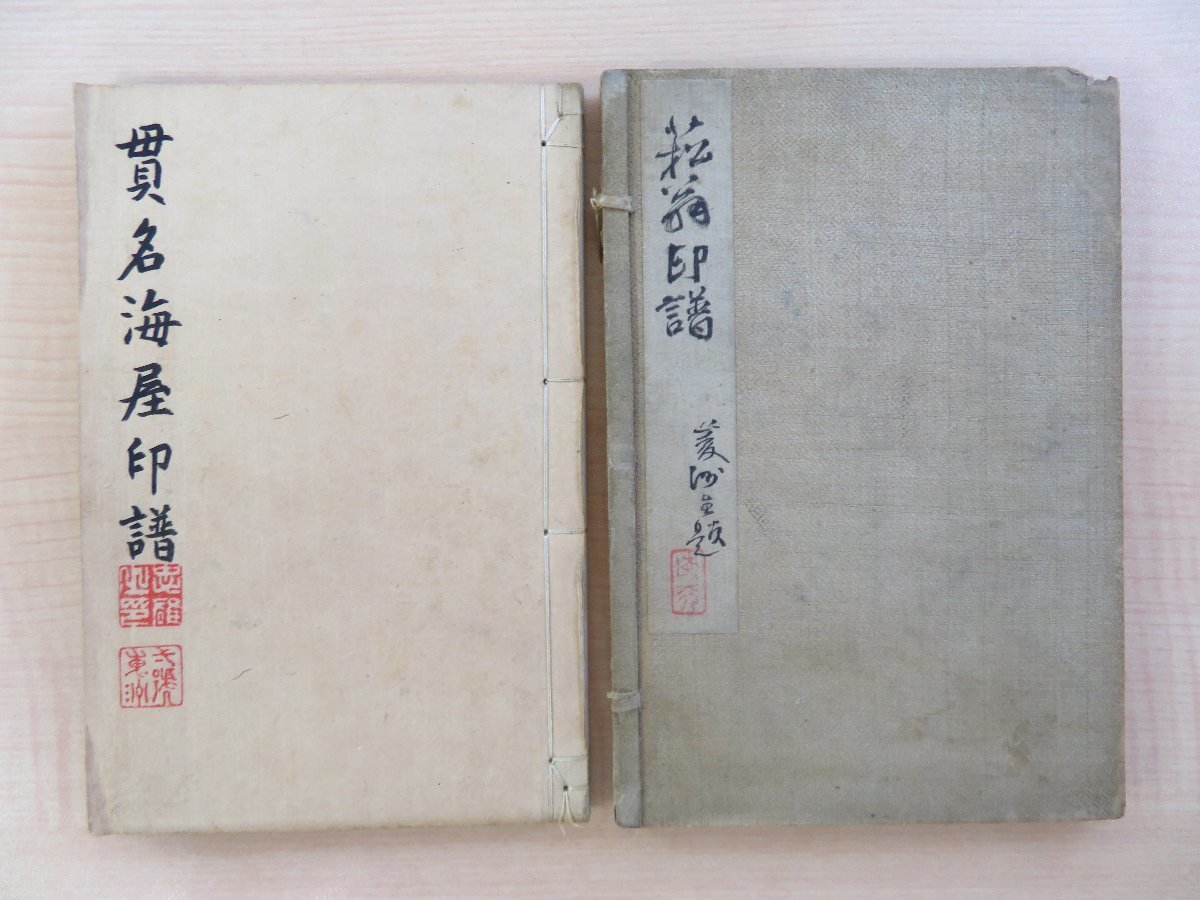 貫名海屋印譜
菘翁印譜
菱洲生題